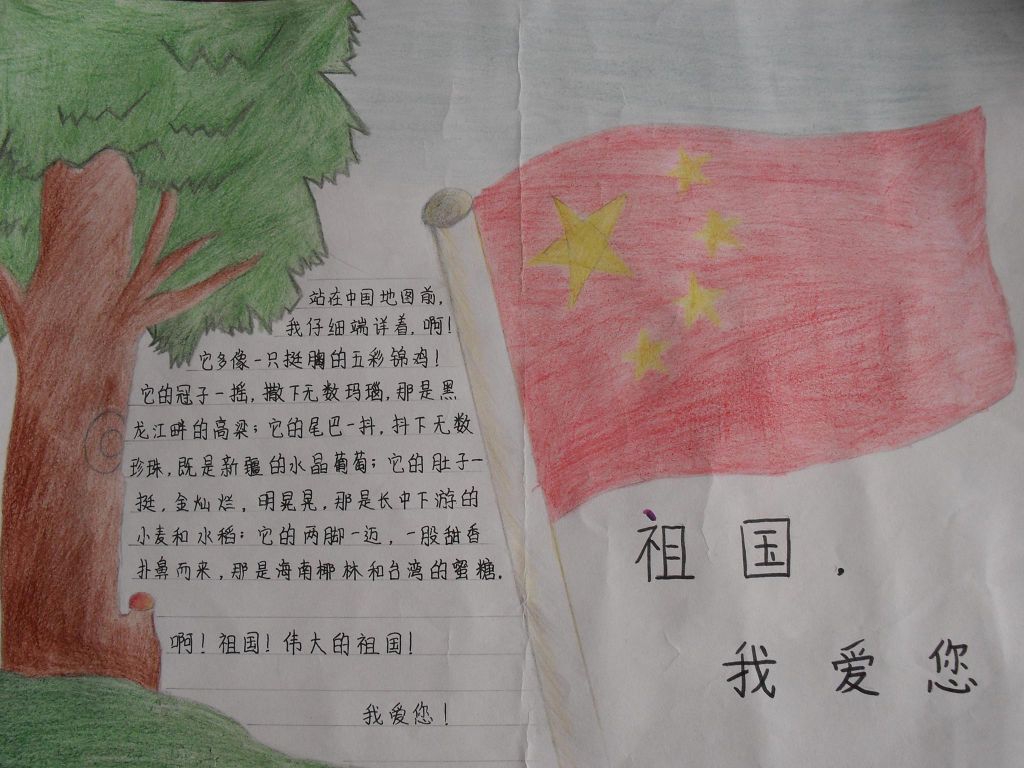 站在中国地图前,
我仔细端详着,啊!
它多像一只挺胸的五彩锦鸡!
它的冠子一摇,撒下无数玛瑙,那是黑
龙江畔的高梁;它的尾巴一抖,抖下无数
珍珠,既是新疆的水晶葡萄;它的肚子一
挺,金灿烂,明晃晃,那是长中下游的
小麦和水稻;它的两脚一迈,一股甜香
扑鼻而来,那是海南椰林和台湾的蜜糖.
啊!祖国!伟大的祖国!
我爱您!
祖国.
我爱您